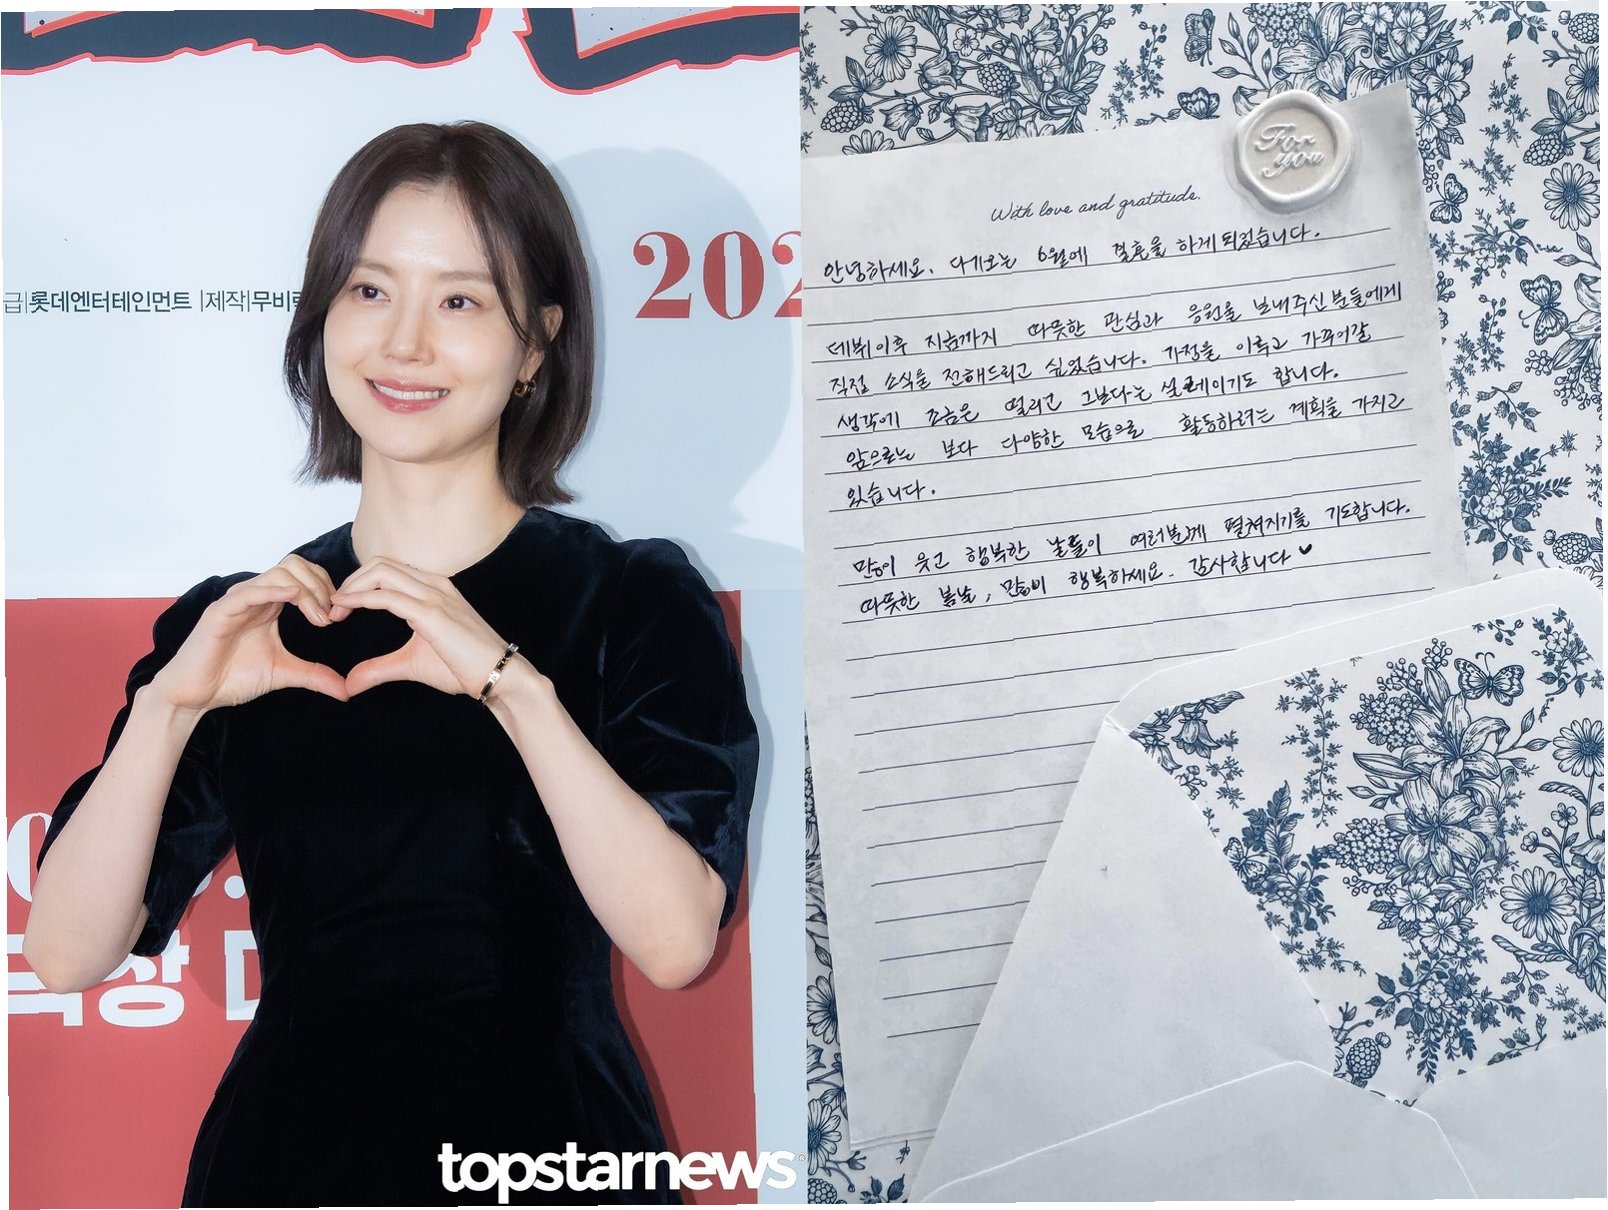 급|롯데엔터테인먼트 |제작|무비락
202
극장 D
topstarnews
For
you
With love and gratitude.
안녕하세요. 다가오는 6월에 결혼을 하게 되었습니다.
데뷔이후 지금까지 따뜻한 관심과 응원을 보내주신 분들에게
직접 소식을 전해드리고 싶었습니다. 가정을 이루고 가꾸어갈
생각에 조금은 떨리고 그보다는 설레이기도 합니다.
앞으로는 보다 다양한 모습으로 활동하려는 계획을 가지고
있습니다.
많이 웃고 행복한 날들이 여러분께 펼쳐지기를 기도합니다.
따뜻한 봄날, 많이 행복하세요. 감사합니다 ♥